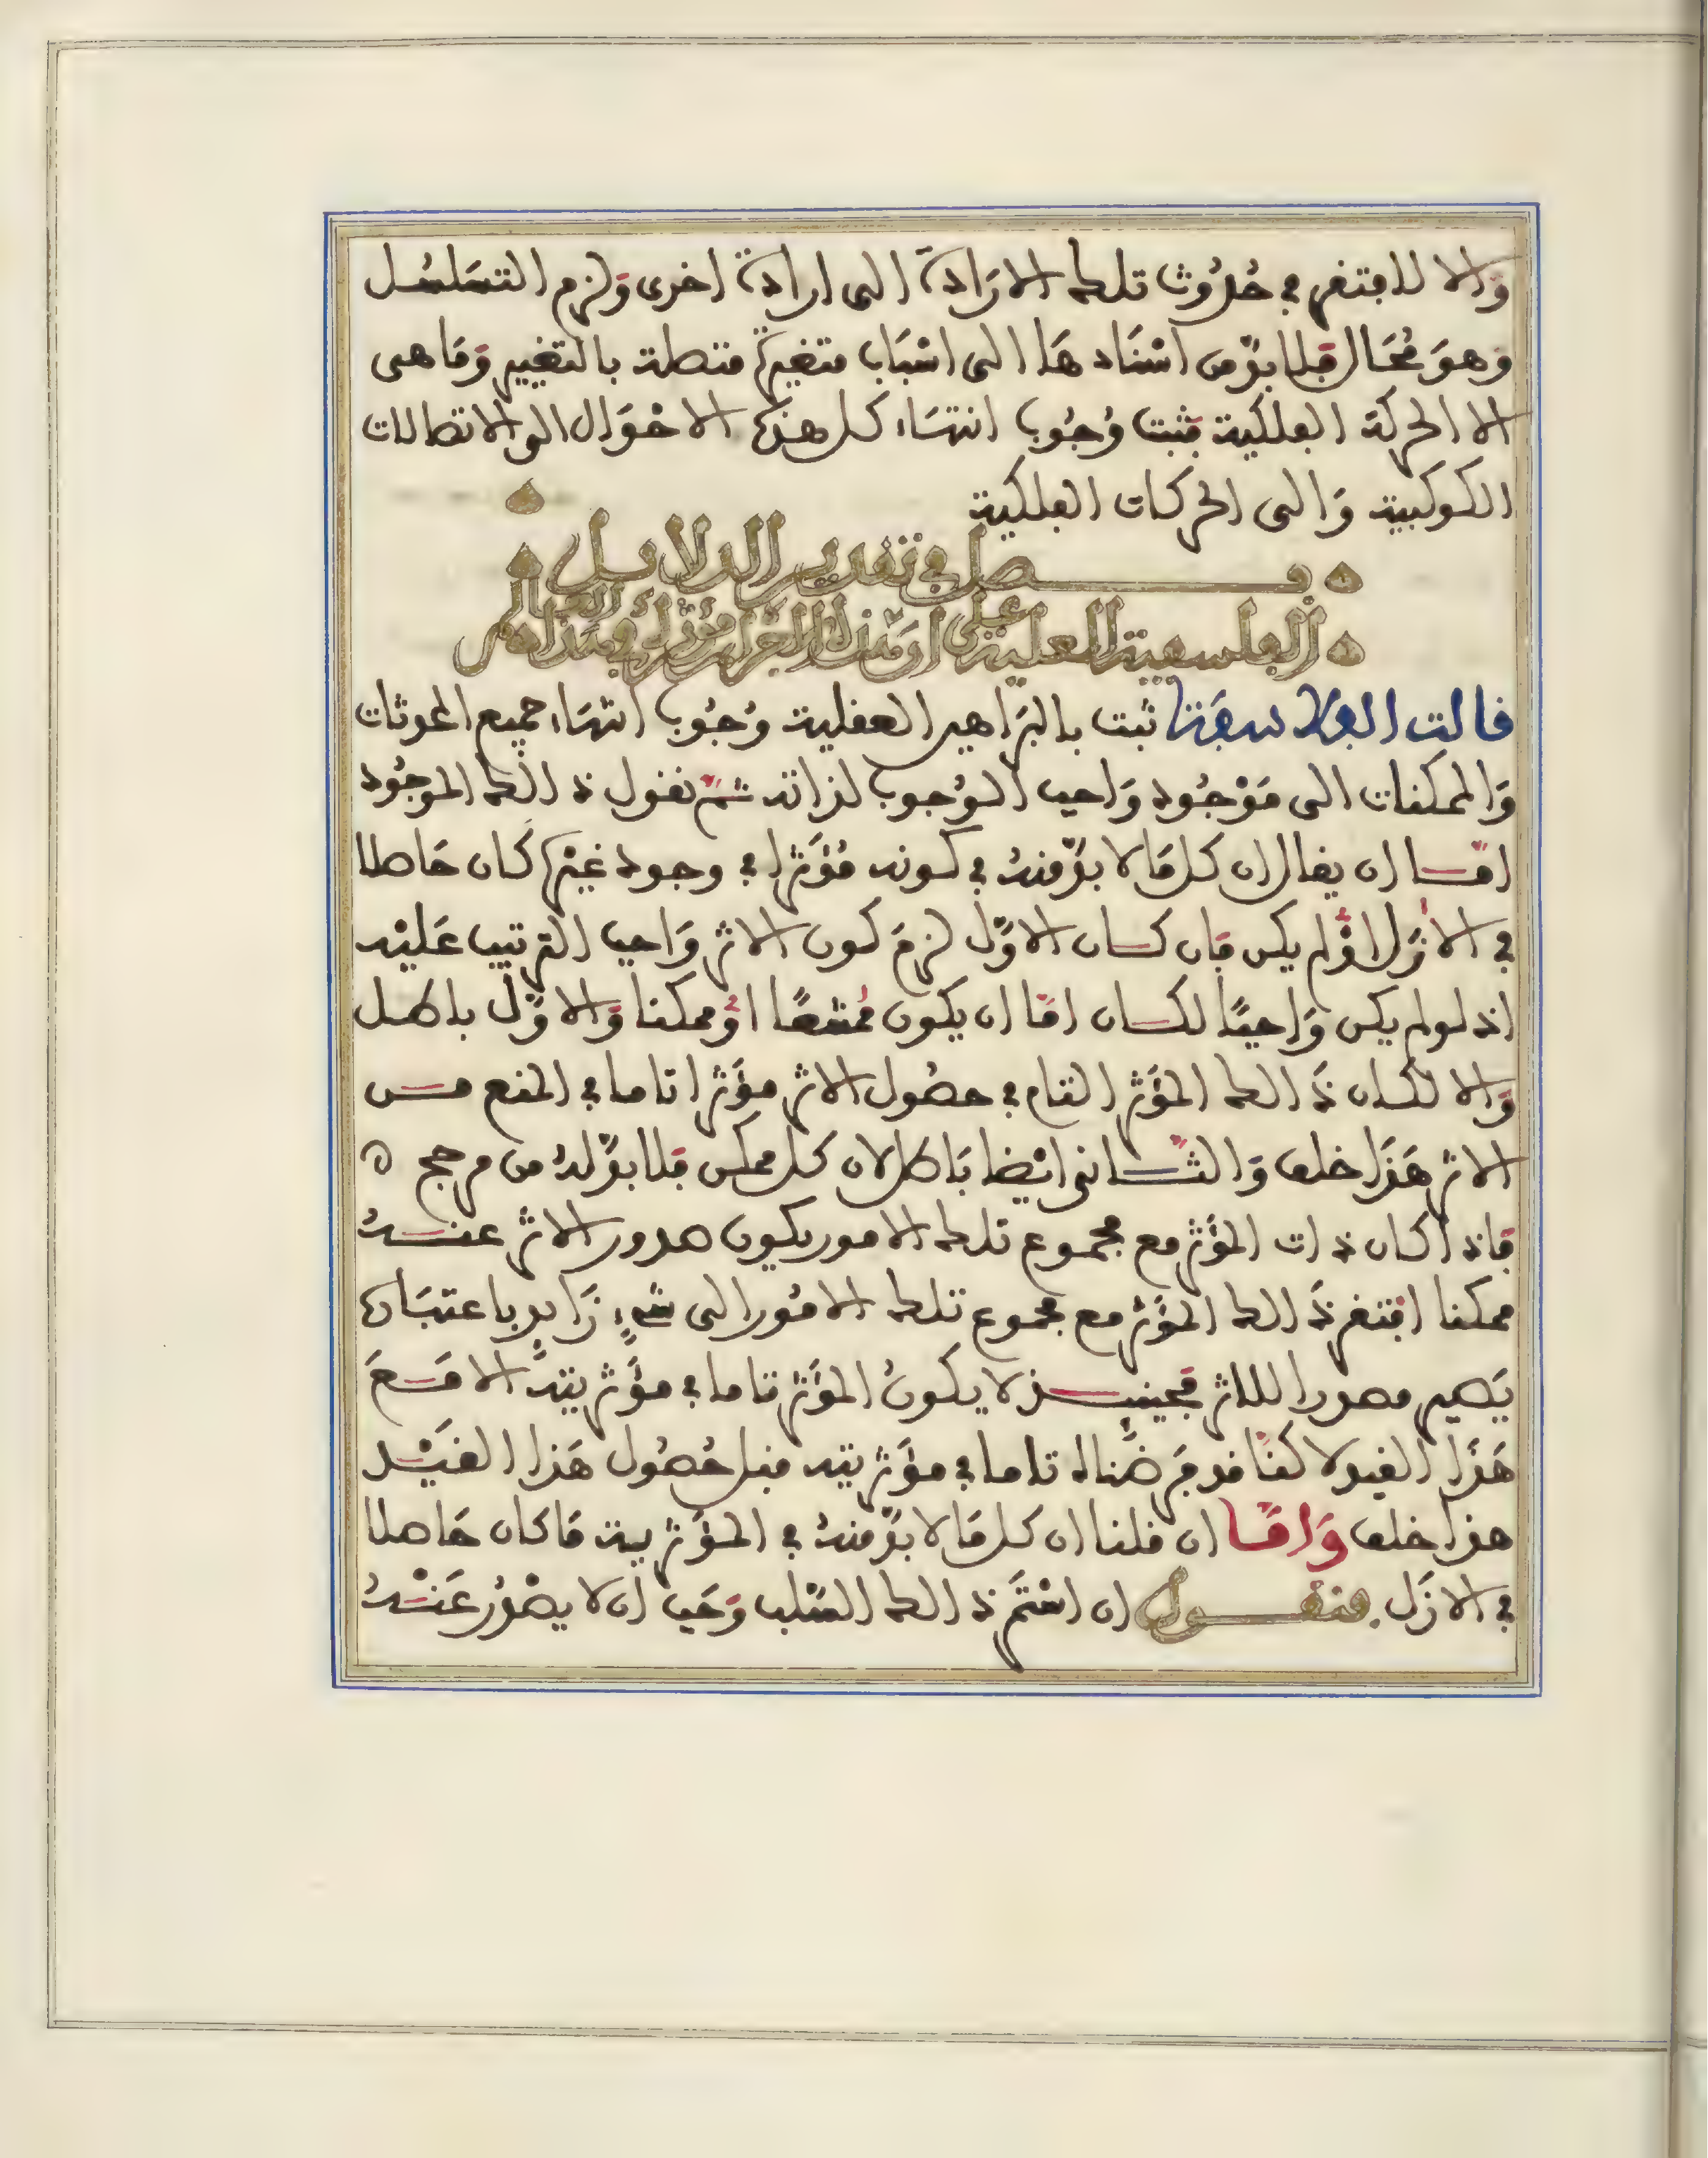 وَالا لافتقر في حُدُوث تلك الارَادة الى ارادة اخرى وَلزم التسَلسُل
وَهوَ مُحَال فلا بدّ من اسْنَادهَا الى اسْبَاب متغيرة متصلة بالتغيير وَمَا هى
الا الحركة الفلكية فثبت وُجُوب انتهَاء كل هذه الاحْوَال الى الاتصالات
الكوكبية وَالى الحركات الفلكية
فصل في تقدير الدلايل
الفلسفية العقلية على ان هذه الاجرام مؤثرة في هذا العالم
قالت الفلاسفة ثبت بالبرَاهين العقلية وُجُوب انتهَاء جميع المحدثات
وَالممكنات الى مَوْجُود وَاجب الوُجوب لذاته ثم نقول ذالك الموجُود
امّا ان يقال ان كل مَا لا بدّ منهُ في كونه مُؤَثرا في وجود غيْره كان حَاصلا
في الأزَل اوْ لم يكن فان كان الاوّل لزمَ كون الاثر وَاجب الترتيب عَليْه
اذ لو لم يكن وَاجبًا لكان امّا ان يكون مُمتنعًا اوْ ممكنا وَالاوّل باطل
وَالا لكان ذَالك المؤَثر التام في حصُول الاثر مؤَثرا تاما في المنع من
الاثر هَذَا خلف وَالثانى ايْضا بَاطل لان كل ممكن فلا بدّ لهُ من مرجح
فاذا كان ذات المؤَثر مع مجموع تلك الامور يكون صدور الاثر عنهُ
ممكنا افتقر ذَالك المؤَثر مع مجموع تلك الامُور الى شىءٍ زَايدٍ باعتبَاره
يَصير مصدرا للاثر فحينئذ لا يكونُ المؤَثر تاما في مؤَثريته الا مَعَ
هَذَا القيد لاكنّا قد فرَضناه تاما في مؤَثريته قبل حُصُول هَذا القيْد
هذا خلف وَامّا ان قلنا ان كل مَا لا بدّ منهُ في المؤَثرية مَا كان حَاصلا
في الازَل فنقول ان اسْتمَر ذالك السّلب وَجَب ان لا يصْدُر عَنْهُ